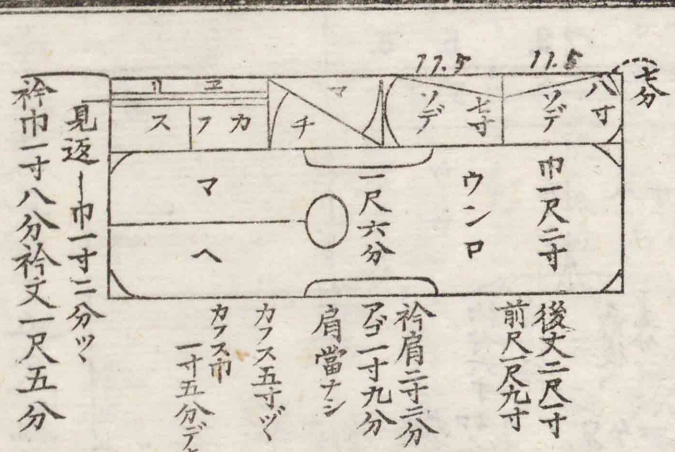 七分
11.5
11.5
八寸
ソデ
七寸
ソデ
マ
チ
ヱリ
カフス
巾一尺二寸
ウシロ
一尺六分
マヘ
後丈二尺一寸
前尺一尺九寸
衿肩二寸二分
アゴ一寸九分
肩當ナシ
カフス五寸ヅヽ
カフス巾
一寸五分デキ
見返シ巾一寸二分ヅヽ
衿巾一寸八分衿丈一尺五分